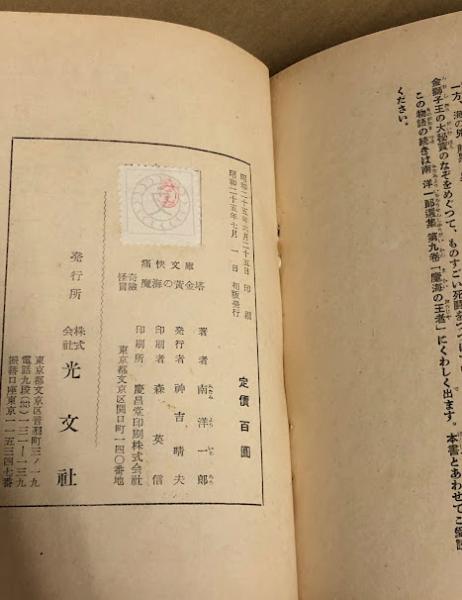 金獅子王の大秘寳のなぞをめぐつて、ものすごい死闘をつづけ
この物語の続きは南 洋一郎選集 第九巻「魔海の王者」にくわしく出ます。本書とあわせてご愛読
ください。
昭和二十五年六月二十五日 印刷
昭和二十五年七月 一 日 初版発行
痛快文庫
怪奇冒險 魔海の黄金塔
定價百圓
著者 南洋一郎
発行者 神吉晴夫
印刷者 森英信
印刷所 慶昌堂印刷株式会社
東京都文京区関口町一四〇番地
発行所 株式会社 光文社
東京都文京区音羽町三ノ一九
振替口座東京一一五三四七番